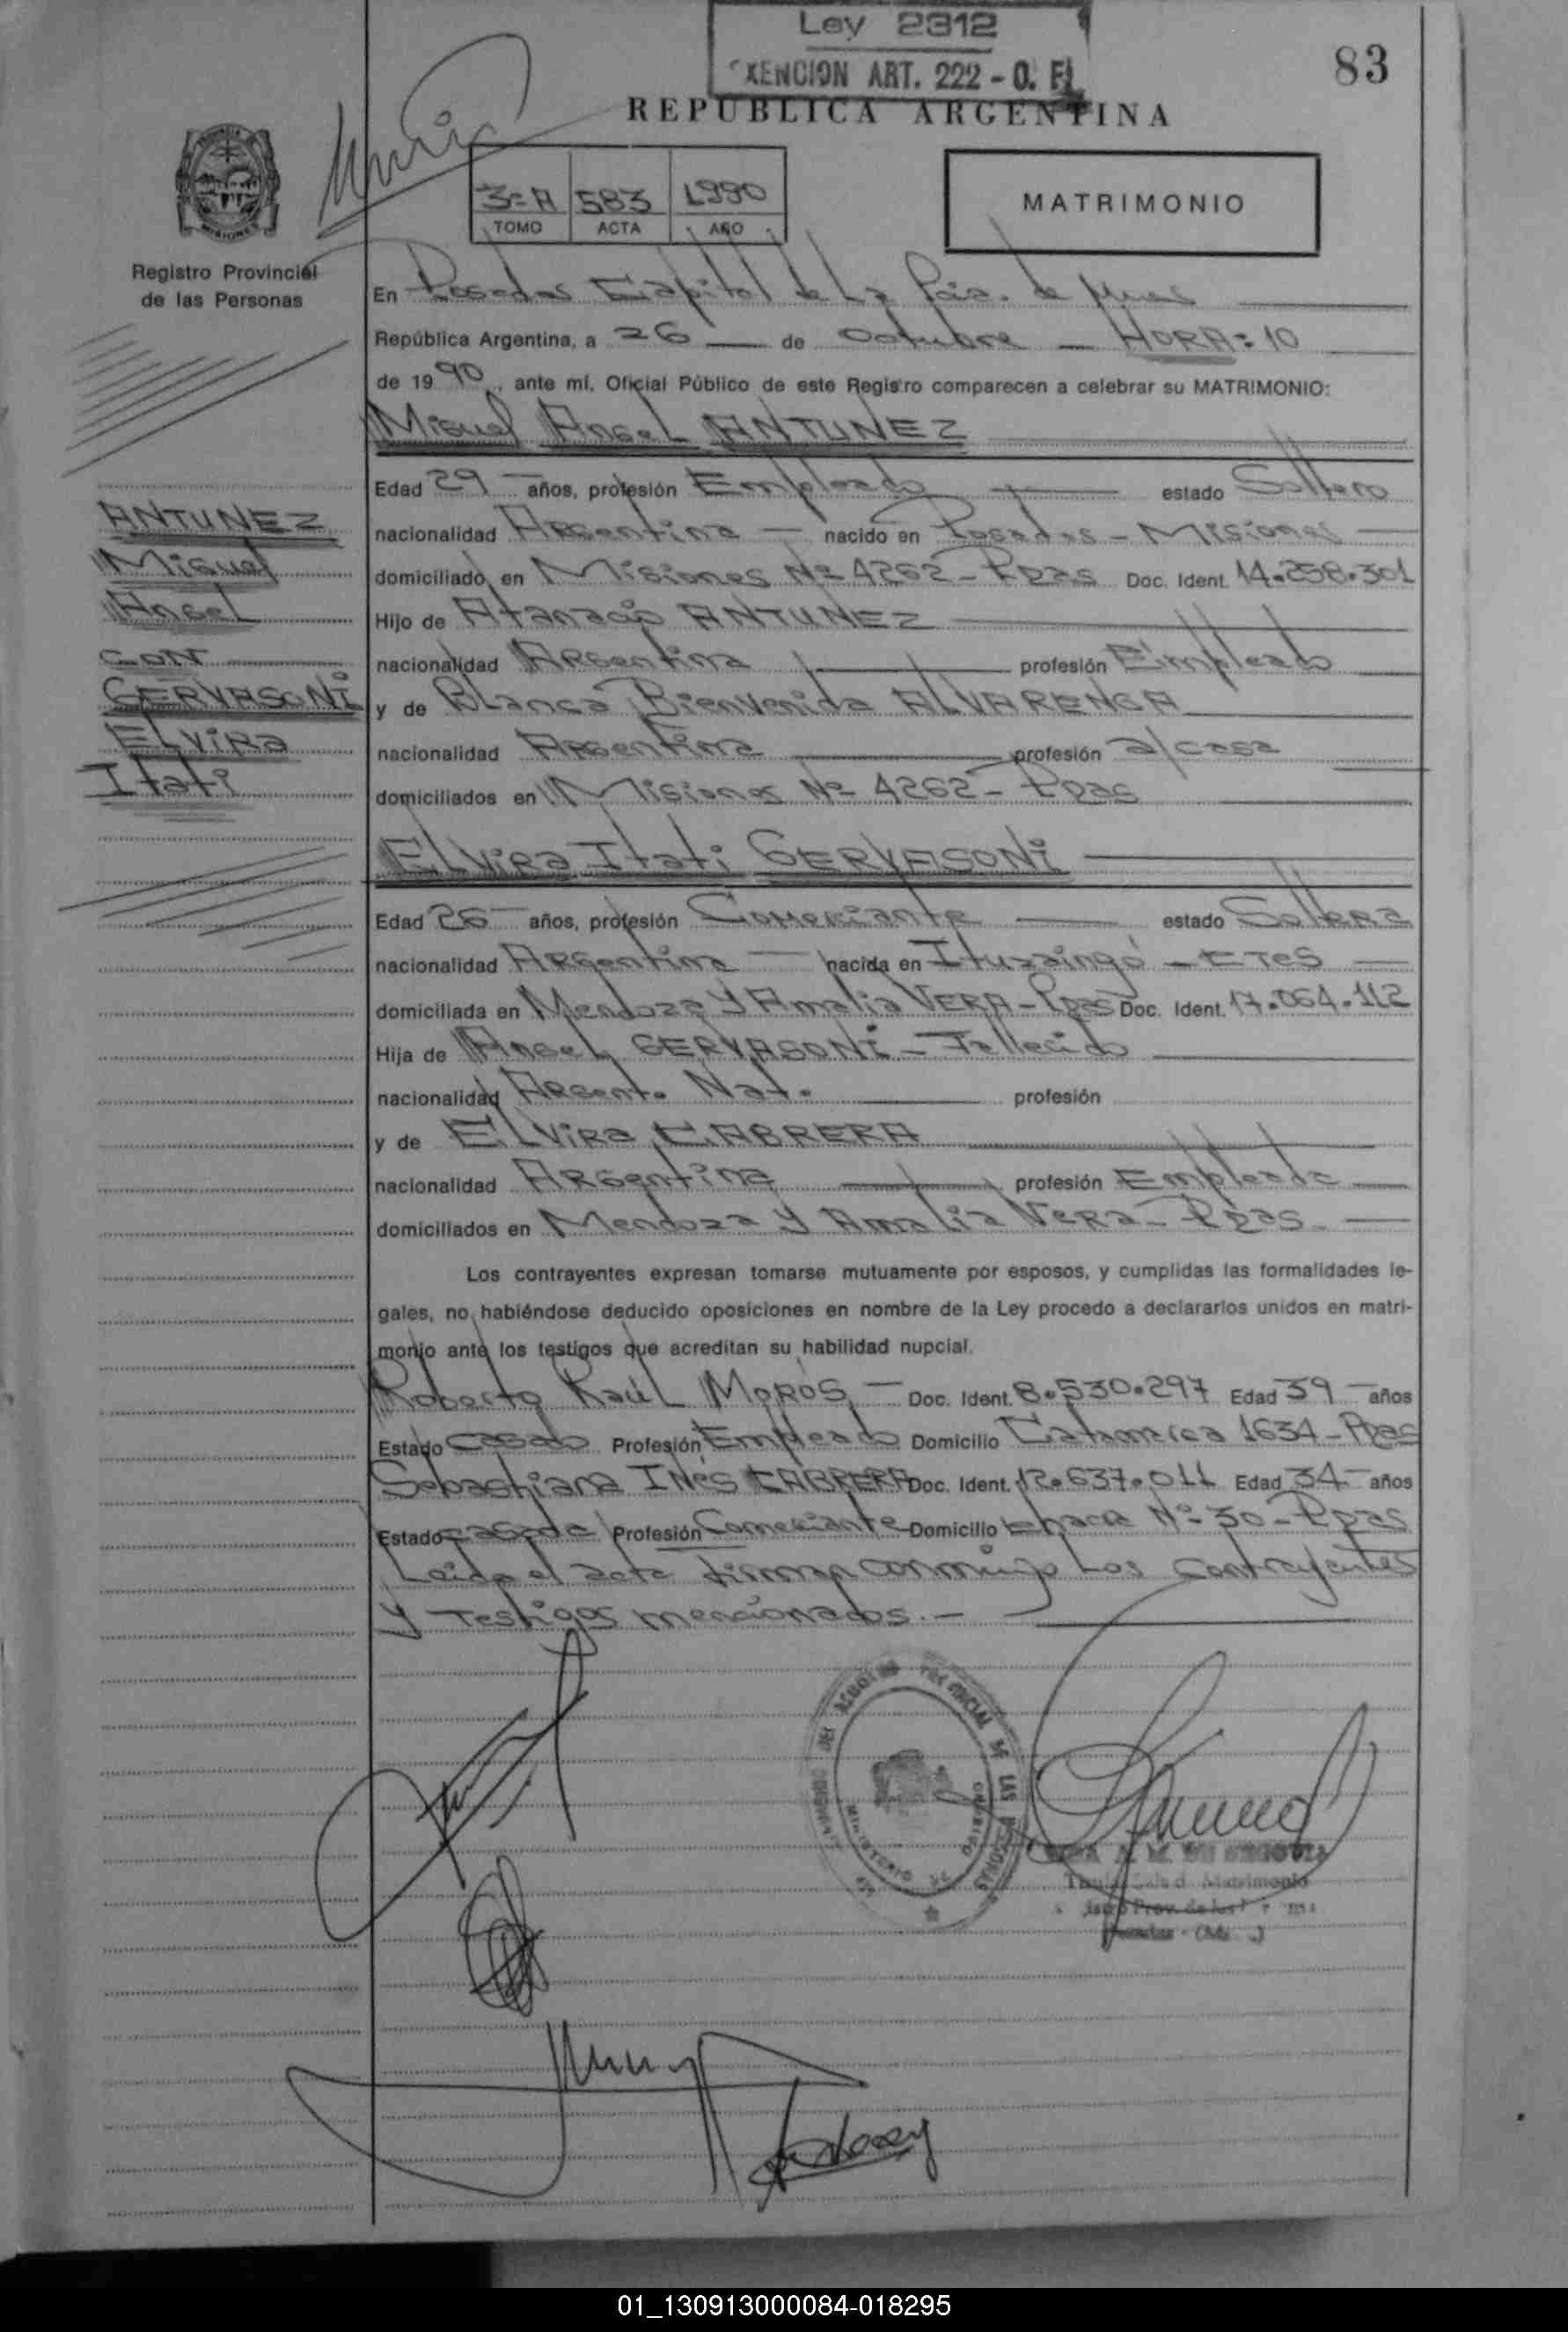 Ley 2312
EXENCION ART. 222 - O. F.
83
REPUBLICA ARGENTINA
3º A 583 1990
TOMO ACTA AÑO
MATRIMONIO
MISIONES
Registro Provincial
de las Personas
En Posadas Capital de La Pcia. de Mnes
República Argentina, a 26 de Octubre - HORA: 10
de 1990, ante mí, Oficial Público de este Registro comparecen a celebrar su MATRIMONIO:
Miguel Angel ANTUNEZ
ANTUNEZ
Miguel
Angel
CON
GERVASONI
ELVIRA
Itatí
Edad 29 años, profesión Empleado estado Soltero
nacionalidad Argentina nacido en Posadas - Misiones
domiciliado en Misiones Nº 4262 - Ppas Doc. Ident. 14.258.301
Hijo de Atanacio ANTUNEZ
nacionalidad Argentina profesión Empleado
y de Blanca Bienvenida ALVARENGA
nacionalidad Argentina profesión a/casa
domiciliados en Misiones Nº 4262 - Ppas
ELVIRA Itatí GERVASONI
Edad 26 años, profesión Comerciante estado Soltera
nacionalidad Argentina nacida en Ituzaingó - CTES
domiciliada en Mendoza y Amalia VERA - Ppas Doc. Ident. 17.064.112
Hija de Angel GERVASONI - Fallecido
nacionalidad Argent. Nat. profesión
y de ELVIRA CABRERA
nacionalidad Argentina profesión Empleada
domiciliados en Mendoza y Amalia Vera - Ppas
Los contrayentes expresan tomarse mutuamente por esposos, y cumplidas las formalidades le-
gales, no habiéndose deducido oposiciones en nombre de la Ley procedo a declararlos unidos en matri-
monio ante los testigos que acreditan su habilidad nupcial.
Roberto Raúl MOROS - Doc. Ident. 8.530.297 Edad 39 años
Estado Casado Profesión Empleado Domicilio Catamarca 1634 - Ppas
Sebastiana INÉS CABRERA Doc. Ident. 12.637.011 Edad 34 años
Estado casada Profesión Comerciante Domicilio Chacra Nº 30 - Ppas
Leída el acta firman conmigo Los contrayentes
y Testigos mencionados. -
DEL REGISTRO PROVINCIAL DE LAS PERSONAS
Matrimonio
Prov. de las
01_130913000084-018295